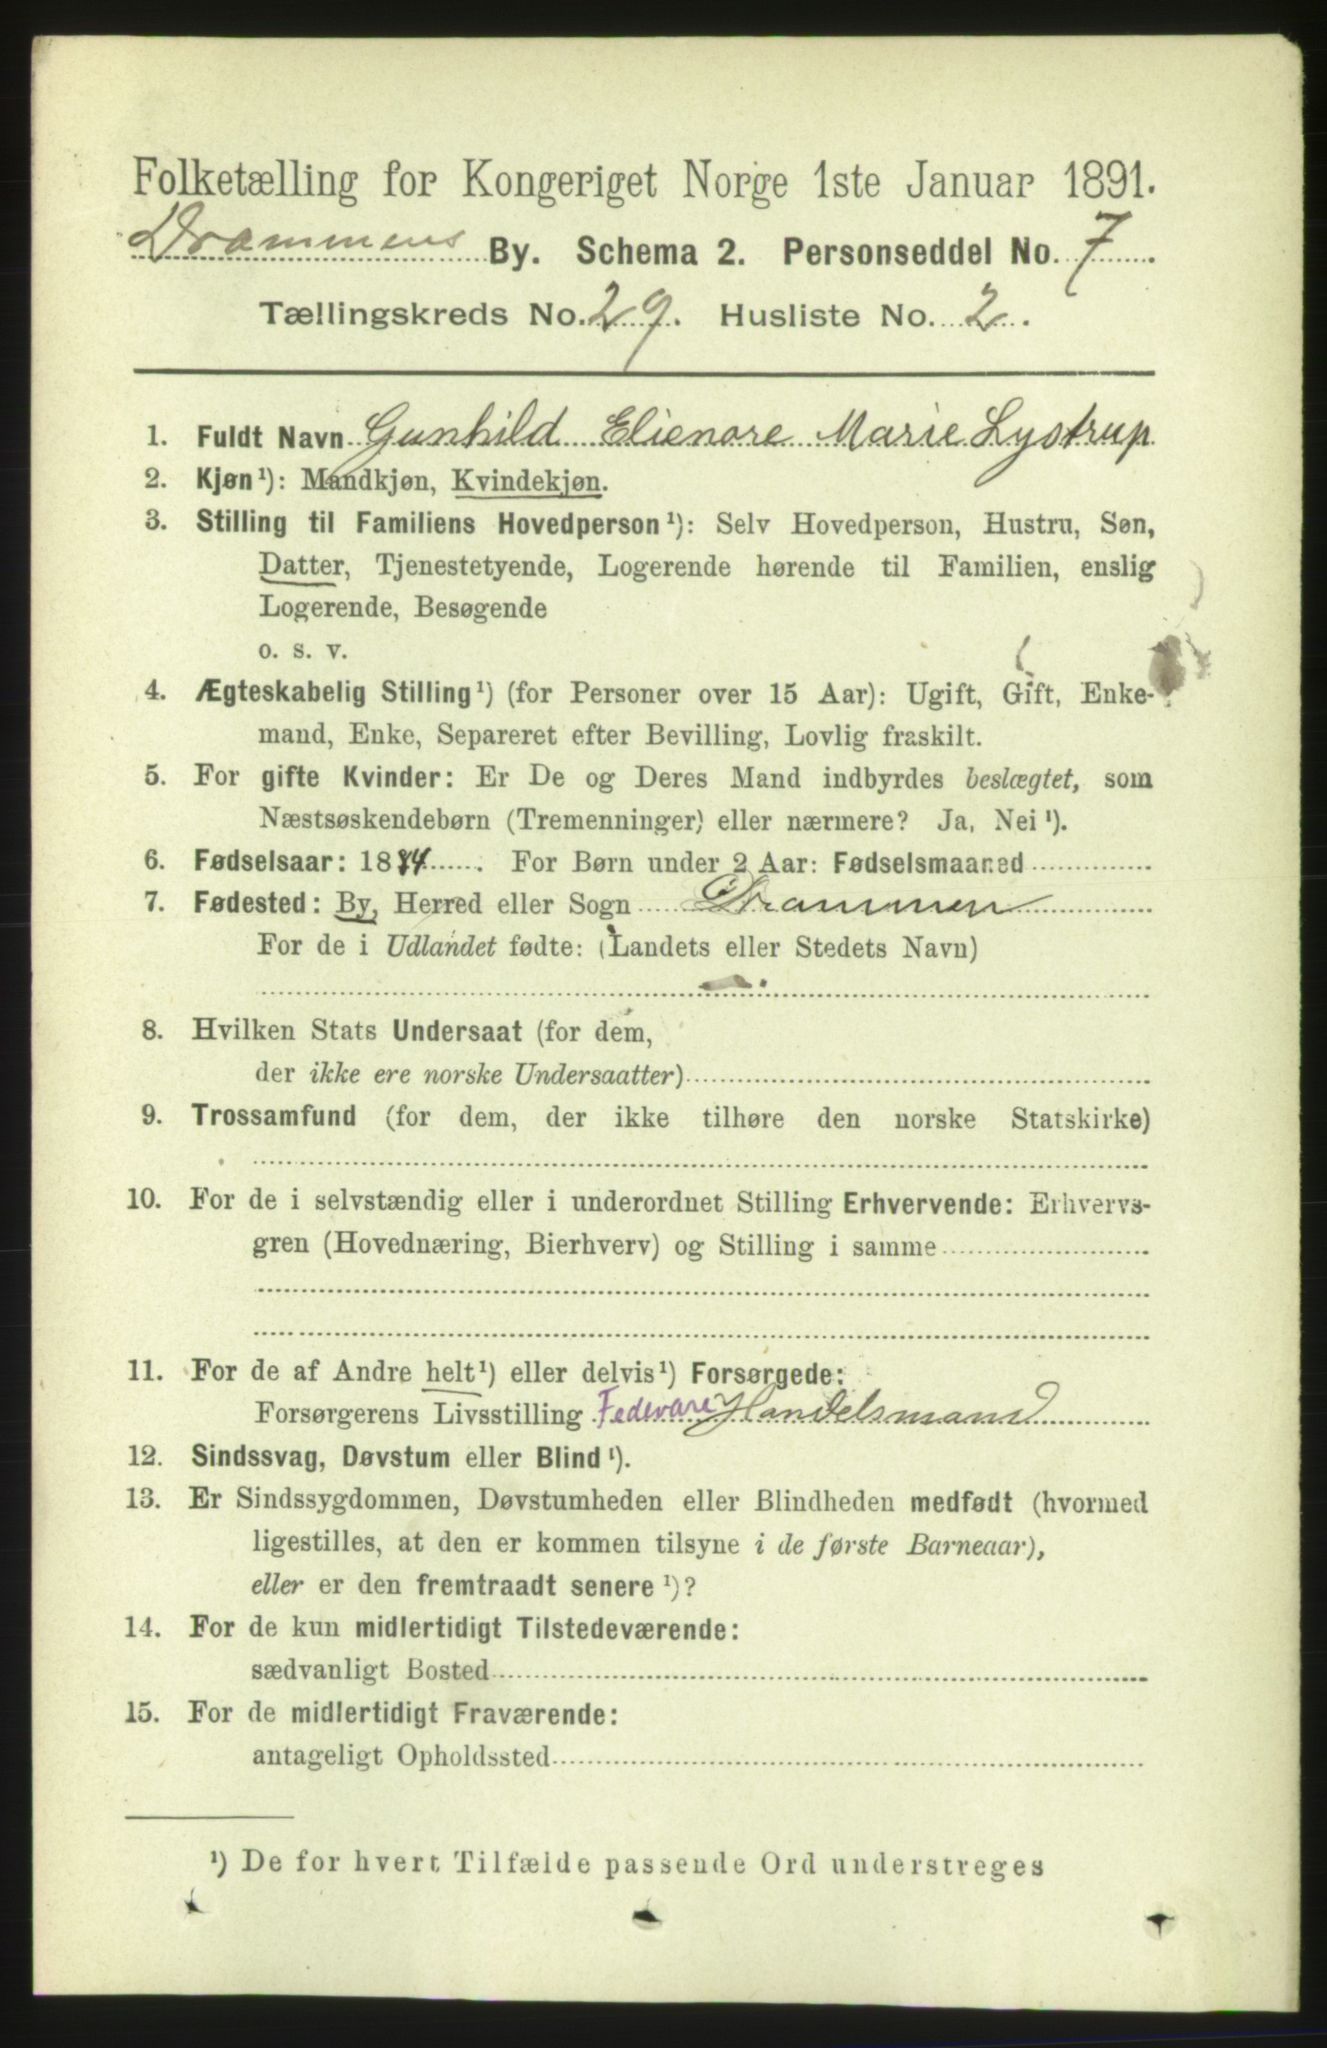 Folketælling for Kongeriget Norge 1ste Januar 1891.
Drammens By. Schema 2. Personseddel No. 7
Tællingskreds No. 29. Husliste No. 2.
1. Fuldt Navn Gunhild Elienore Marie Lystrup
2. Kjøn¹): Mandkjøn, Kvindekjøn.
3. Stilling til Familiens Hovedperson¹): Selv Hovedperson, Hustru, Søn,
Datter, Tjenestetyende, Logerende hørende til Familien, enslig
Logerende, Besøgende
o. s. v.
4. Ægteskabelig Stilling¹) (for Personer over 15 Aar): Ugift, Gift, Enke-
mand, Enke, Separeret efter Bevilling, Lovlig fraskilt.
5. For gifte Kvinder: Er De og Deres Mand indbyrdes beslægtet, som
Næstsøskendebørn (Tremenninger) eller nærmere? Ja, Nei¹).
6. Fødselsaar: 1884. For Børn under 2 Aar: Fødselsmaaned
7. Fødested: By, Herred eller Sogn Drammen
For de i Udlandet fødte: (Landets eller Stedets Navn)
8. Hvilken Stats Undersaat (for dem,
der ikke ere norske Undersaatter)
9. Trossamfund (for dem, der ikke tilhøre den norske Statskirke)
10. For de i selvstændig eller i underordnet Stilling Erhvervende: Erhvervs-
gren (Hovednæring, Bierhverv) og Stilling i samme
11. For de af Andre helt¹) eller delvis¹) Forsørgede:
Forsørgerens Livsstilling Fedevare Handelsmand
12. Sindssvag, Døvstum eller Blind¹).
13. Er Sindssygdommen, Døvstumheden eller Blindheden medfødt (hvormed
ligestilles, at den er kommen tilsyne i de første Barneaar),
eller er den fremtraadt senere¹)?
14. For de kun midlertidigt Tilstedeværende:
sædvanligt Bosted
15. For de midlertidigt Fraværende:
antageligt Opholdssted
¹) De for hvert Tilfælde passende Ord understreges